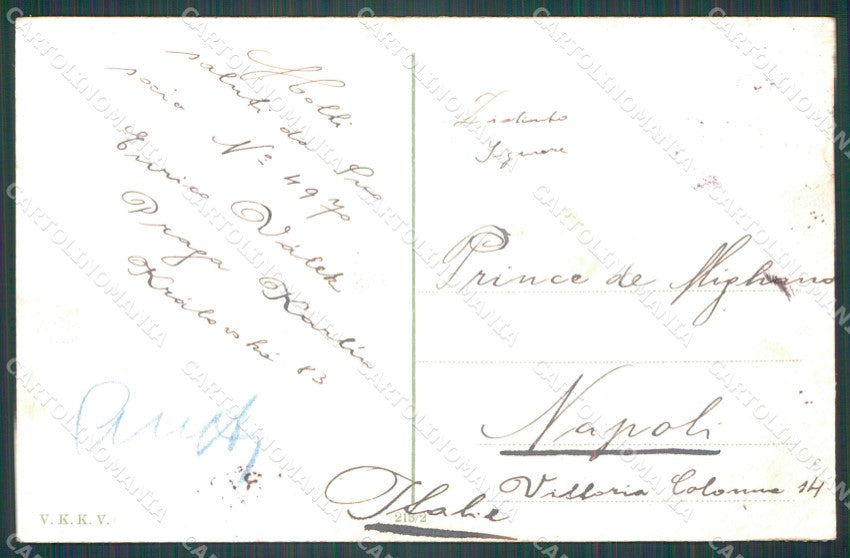 Molti
saluti da Suo
socio Nº 4970
Enrico Válek
Praga Karlín
Královská 83
V. K. K. V.
215/2
Signore
Prince de Migliano
Napoli
Vittoria Colonna 14
Italie
CARTOLINOMANIA